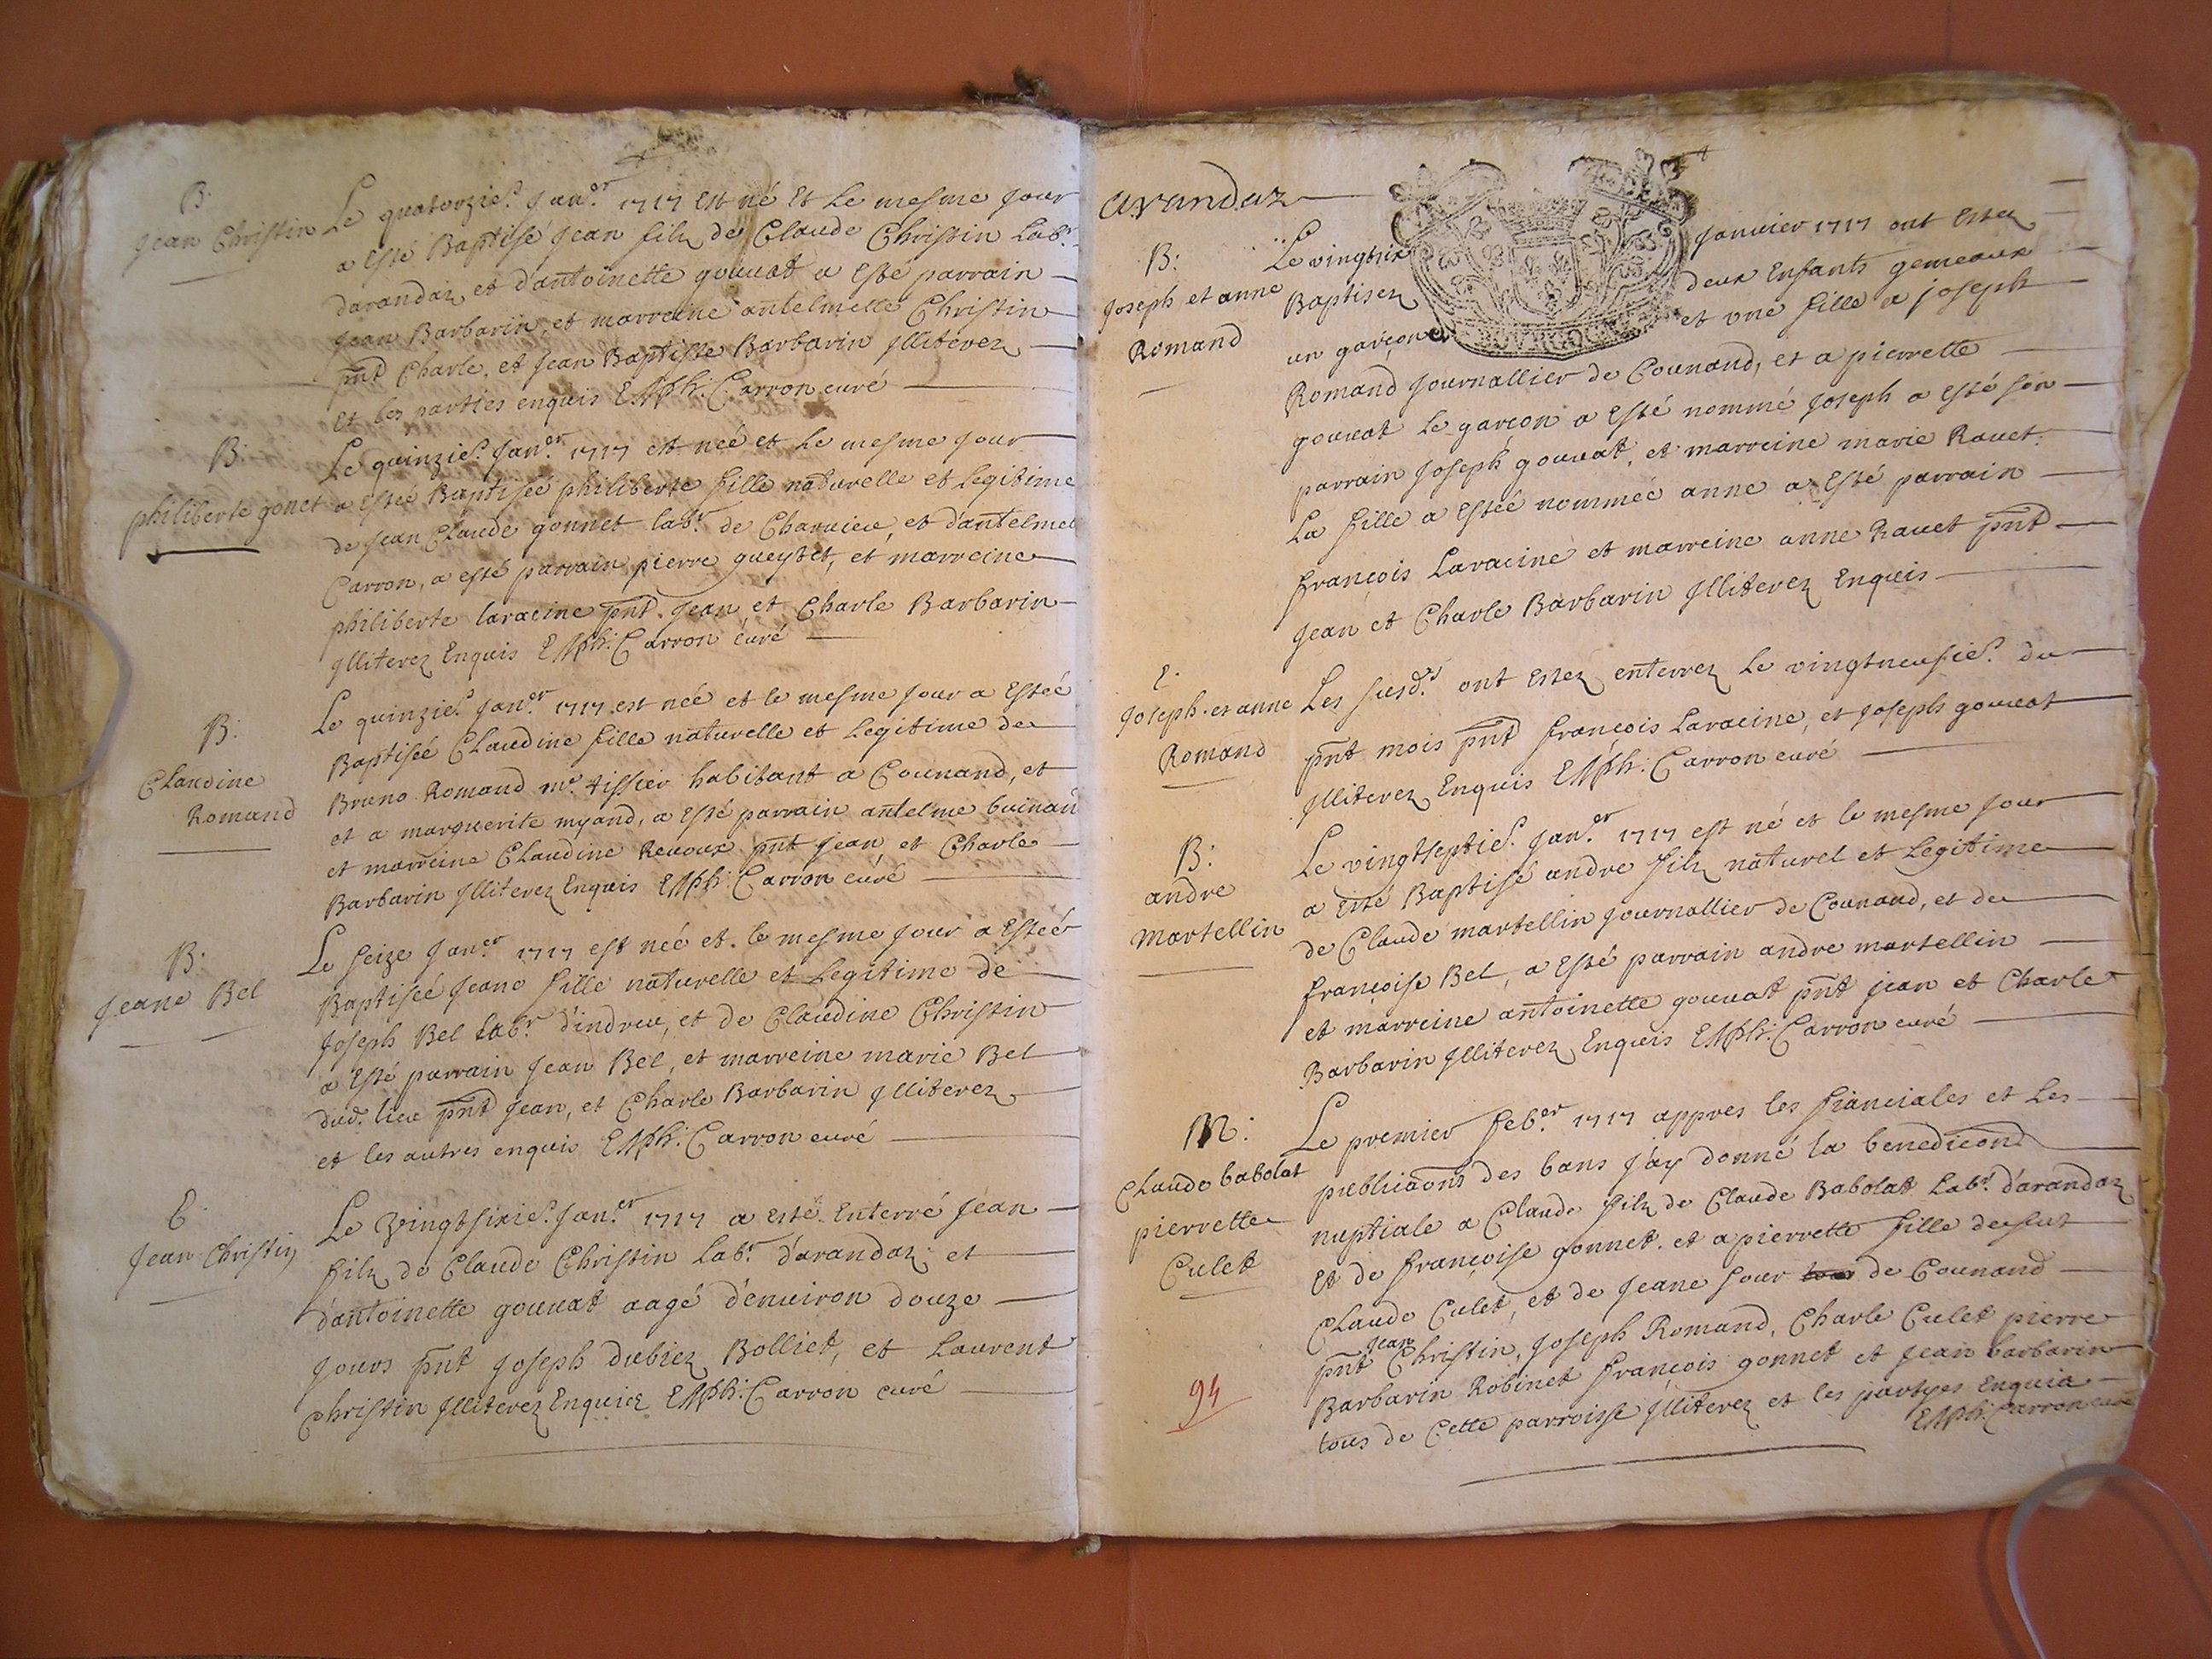 B.
Jean Christin
Le quatorzie.e Jan.er 1717 est né et le mesme jour
a esté Baptisé Jean filz de Claude Christin Lab.r
darandaz et d'antoinette gouuat a esté parrain
Jean Barbarin, et marreine antelmette Christin
pnt Charle, et Jean Baptiste Barbarin Jlliterez
et les parties enquis Carron curé
B.
philiberte gonet
Le quinzie.e Jan.er 1717 est née et le mesme jour
a estée Baptisée philiberte fille naturelle et Legitime
de Jean Claude gonnet lab.r de Charuieu, et d'antelmet
Carron, a esté parrain pierre queytet, et marreine
philiberte laracine pnt Jean et Charle Barbarin
Jlliterez Enquis Carron curé
B:
Claudine
Romand
Le quinzie.e Jan.er 1717 est née et le mesme jour a estée
Baptisée Claudine fille naturelle et Legitime de
Bruno Romand m.e tissier habitant a Counand, et
et a marguerite myand, a esté parrain antelme buinan
et marreine Claudine Reuoux pnt Jean et Charle
Barbarin Jlliterez Enquis Carron curé
B.
Jeane Bel
Le seize Jan.er 1717 est née et le mesme jour a estée
Baptisée Jeane fille naturelle et Legitime de
Joseph Bel Lab.r d'indrieu, et de Claudine Christin
a esté parrain Jean Bel, et marreine marie Bel
dud. lieu pnt Jean, et Charle Barbarin Jlliterez
et les autres enquis Carron curé
E.
Jean Christin
Le vingtsixie.e Jan.er 1717 a esté Enterré Jean
filz de Claude Christin Lab.r d'arandaz et
d'antoinette gouuat aagé d'enuiron douze
Jours pnt Joseph dubiez Bolliet, et Laurent
Christin Jlliterez Enquiez Carron curé
arandaz
B:
Joseph et anne
Romand
Le vingtsix Januier 1717 ont Estez
Baptisez deux Enfants gemeaux
un garçon et vne fille a joseph
Romand Journallier de Counand, et a pierrette
gouuat le garcon a esté nommé Joseph a esté son
parrain Joseph gouuat, et marreine marie Rauet.
La fille a estée nommée anne a Esté parrain
françois Laracine et marreine anne Rauet pnt
Jean et Charle Barbarin Jlliterez Enquis
E.
Joseph et anne
Romand
Les susd.s ont Estez enterrez le vingtneufie.e du
pnt mois pnt francois Laracine, et Joseph gouuat
Jlliterez Enquis Carron curé
B:
andre
Martellin
Le vingtseptie.e Jan.er 1717 est né et le mesme jour
a esté Baptisé andre filz naturel et Legitime
de Claude martellin Journallier de Counand, et de
françoise Bel, a Esté parrain andre martellin
et marreine antoinette gouuat pnt jean et Charle
Barbarin Jlliterez Enquis Carron curé
M:
Claude babolat
pierrette
Culet
Le premier feb.er 1717 appres les fianciales et les
publicaons des bans j'ay donné la benedicond
nuptiale a Claude filz de Claude Babolat Lab.r d'arandaz
et de françoise gonnet. et a pierrette fille de fut
Claude Culet, et de Jeane sour de Counand
jean
pnt Christin, Joseph Romand, Charle Culet pierre
Barbarin Robinet françois gonnet et Jean barbarin
tous de Cette parroisse Jlliterez et les partyes Enquis
Carron curé
94